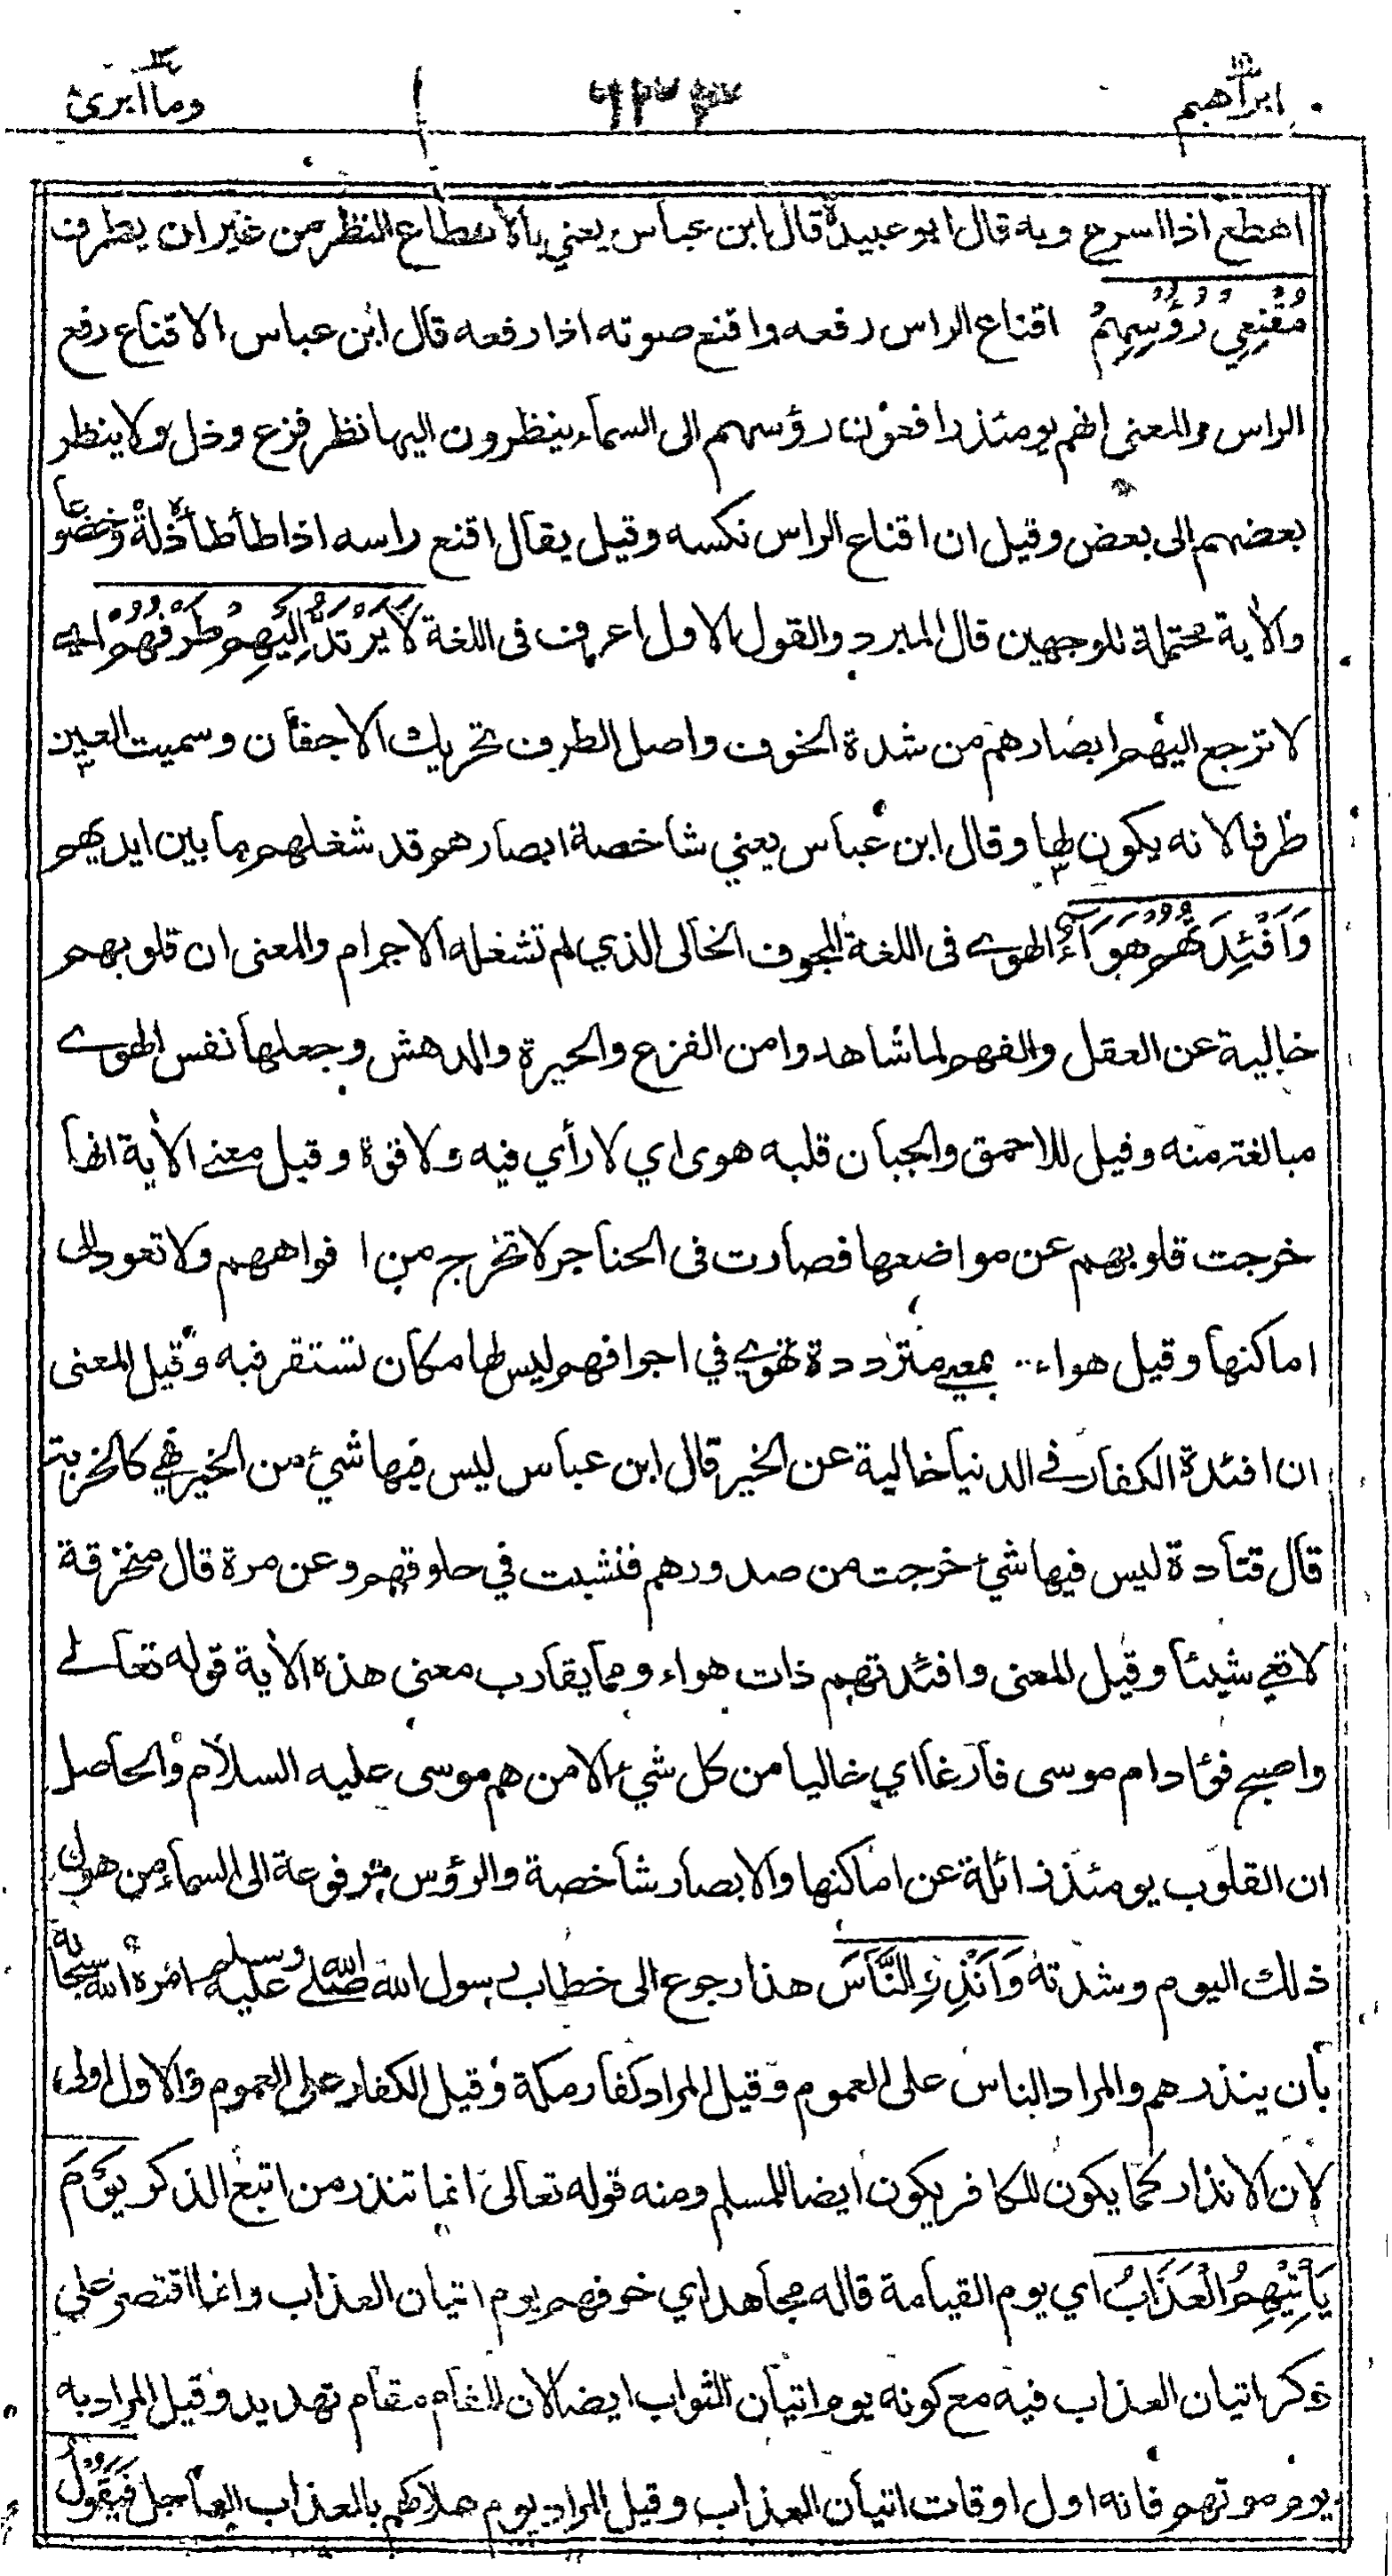 ابراهيم ١٤
٦٣٣
وما ابرئ ١٣
اهطع اذا اسرع وبه قال ابو عبيدة قال ابن عباس يعني بالاهطاع النظر من غير ان يطرف
مُقْنِعِي رُؤُسِهِمْ اقناع الراس رفعه واقنع صوته اذا رفعه قال ابن عباس الاقناع رفع
الراس والمعنى انهم يومئذ رافعون رؤسهم الى السماء ينظرون اليها نظر فزع وذل ولا ينظر
بعضهم الى بعض وقيل ان اقناع الراس نكسه وقيل يقال اقنع راسه اذا طأطأ ذلة وخضوعا
والاٰية محتملة للوجهين قال المبرد والقول الاول اعرف فى اللغة لَا يَرْتَدُّ اِلَيْهِمْ طَرْفُهُمْ اي
لا ترجع اليهم ابصارهم من شدة الخوف واصل الطرف تحريك الاجفان وسميت العين
طرفا لانه يكون لها وقال ابن عباس يعني شاخصة ابصارهم قد شغلهم ما بين ايديهم
وَاَفْئِدَتُهُمْ هَوَآءٌ الهوى فى اللغة المجوف الخالى الذي لم تشغله الاجرام والمعنى ان قلوبهم
خالية عن العقل والفهم لما شاهدوا من الفزع والحيرة والدهش وجعلها نفس الهوى
مبالغة منه وقيل للاحمق والجبان قلبه هوى اي لا رأي فيه ولا قوة وقيل معنى الاٰية انها
خرجت قلوبهم عن مواضعها فصارت فى الحناجر لا تخرج من افواههم ولا تعود الى
اماكنها وقيل هواء بمعنى مترددة تهوي في اجوافهم ليس لها مكان تستقر فيه وقيل المعنى
ان افئدة الكفار في الدنيا خالية عن الخير قال ابن عباس ليس فيها شيء من الخير فهي كالخربة
قال قتادة ليس فيها شيء خرجت من صدورهم فنشبت في حلوقهم وعن مرة قال منخرقة
لا تعي شيئا وقيل المعنى وافئدتهم ذات هواء ومما يقارب معنى هذه الاٰية قوله تعالى
واصبح فؤاد ام موسى فارغا اي خاليا من كل شيء الا من هم موسى عليه السلام والحاصل
ان القلوب يومئذ زائلة عن اماكنها والابصار شاخصة والرؤس مرفوعة الى السماء من هول
ذلك اليوم وشدته وَاَنْذِرِ النَّاسَ هذا رجوع الى خطاب رسول الله صلى الله عليه وسلم امره الله سبحانه
بأن ينذرهم والمراد الناس على العموم وقيل المراد كفار مكة وقيل الكفار على العموم والاول اولى
لان الانذار كما يكون للكافر يكون ايضا للمسلم ومنه قوله تعالى انما تنذر من اتبع الذكر يَوْمَ
يَأْتِيْهِمُ الْعَذَابُ اي يوم القيامة قاله مجاهد اي خوفهم يوم اتيان العذاب وانما اقتصر على
ذكر اتيان العذاب فيه مع كونه يوم اتيان الثواب ايضا لان المقام مقام تهديد وقيل المراد به
يوم موتهم فانه اول اوقات اتيان العذاب وقيل المراد يوم هلاكهم بالعذاب العاجل فَيَقُوْلُ